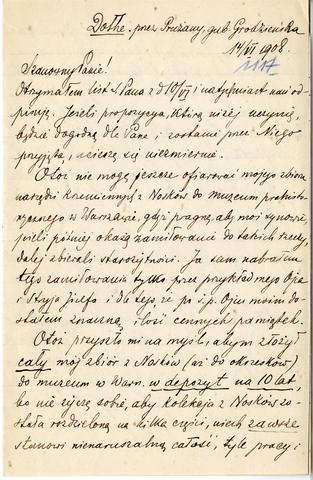 Dothe. przez Prużany, gub. Grodzieńska
14/VI 1908.
Szanowny Panie!
Otrzymałem list Pana z d 10/VI i natychmiast nań od-
pisuję. Jeżeli propozycya, którą niżej uczynię,
będzie dogodną dla Pana i zostanie przez Niego
przyjętą, ucieszę się niezmiernie.
Otóż nie mogę jeszcze ofiarować mojego zbioru
narzędzi krzemiennych z Nosków do muzeum prehisto-
rycznego w Warszawie, gdyż pragnę, aby moi synowie,
jeżeli później okażą zamiłowanie do takich rzeczy,
dalej zbierali starożytności. Ja sam nabrałem
tego zamiłowania tylko przez przykład mego Ojca
i Stryja Józefa i do tego że po ś.p. Ojcu moim do-
stałem znaczną ilość cennych pamiątek.
Otóż przyszło mi na myśl, abym złożył
cały mój zbiór z Nosków (aż do okrzesków)
do muzeum w Warsz. w depozyt na 10 lat,
bo nie życzę sobie, aby kolekcja z Nosków zo-
stała rozdzieloną na kilka części, niech zawsze
stanowi nienaruszalną całość, tyle pracy i